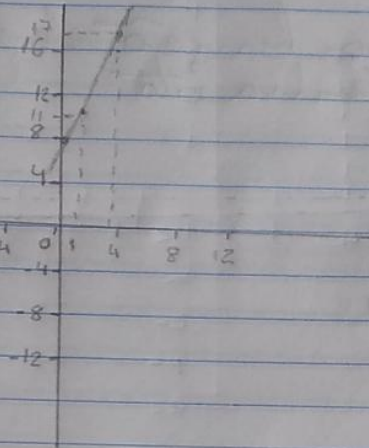 17
16
12
11
8
4
4 0 1 4 8 12
-4
-8
-12